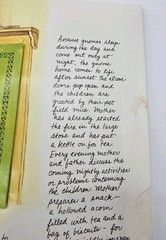 Because gnomes sleep
during the day and
come out only at
night, the gnome
home comes to life
after sunset. The alcove
doors pop open and
the children are
greeted by their pet
field mice. Mother
has already started
the fire in the large
stove and has put
a kettle on for tea.
Every evening mother
and father discuss the
coming night's activities
or problems concerning
the children. Mother
prepares a snack—
a hollowed acorn
filled with tea and a
bag of biscuits - for